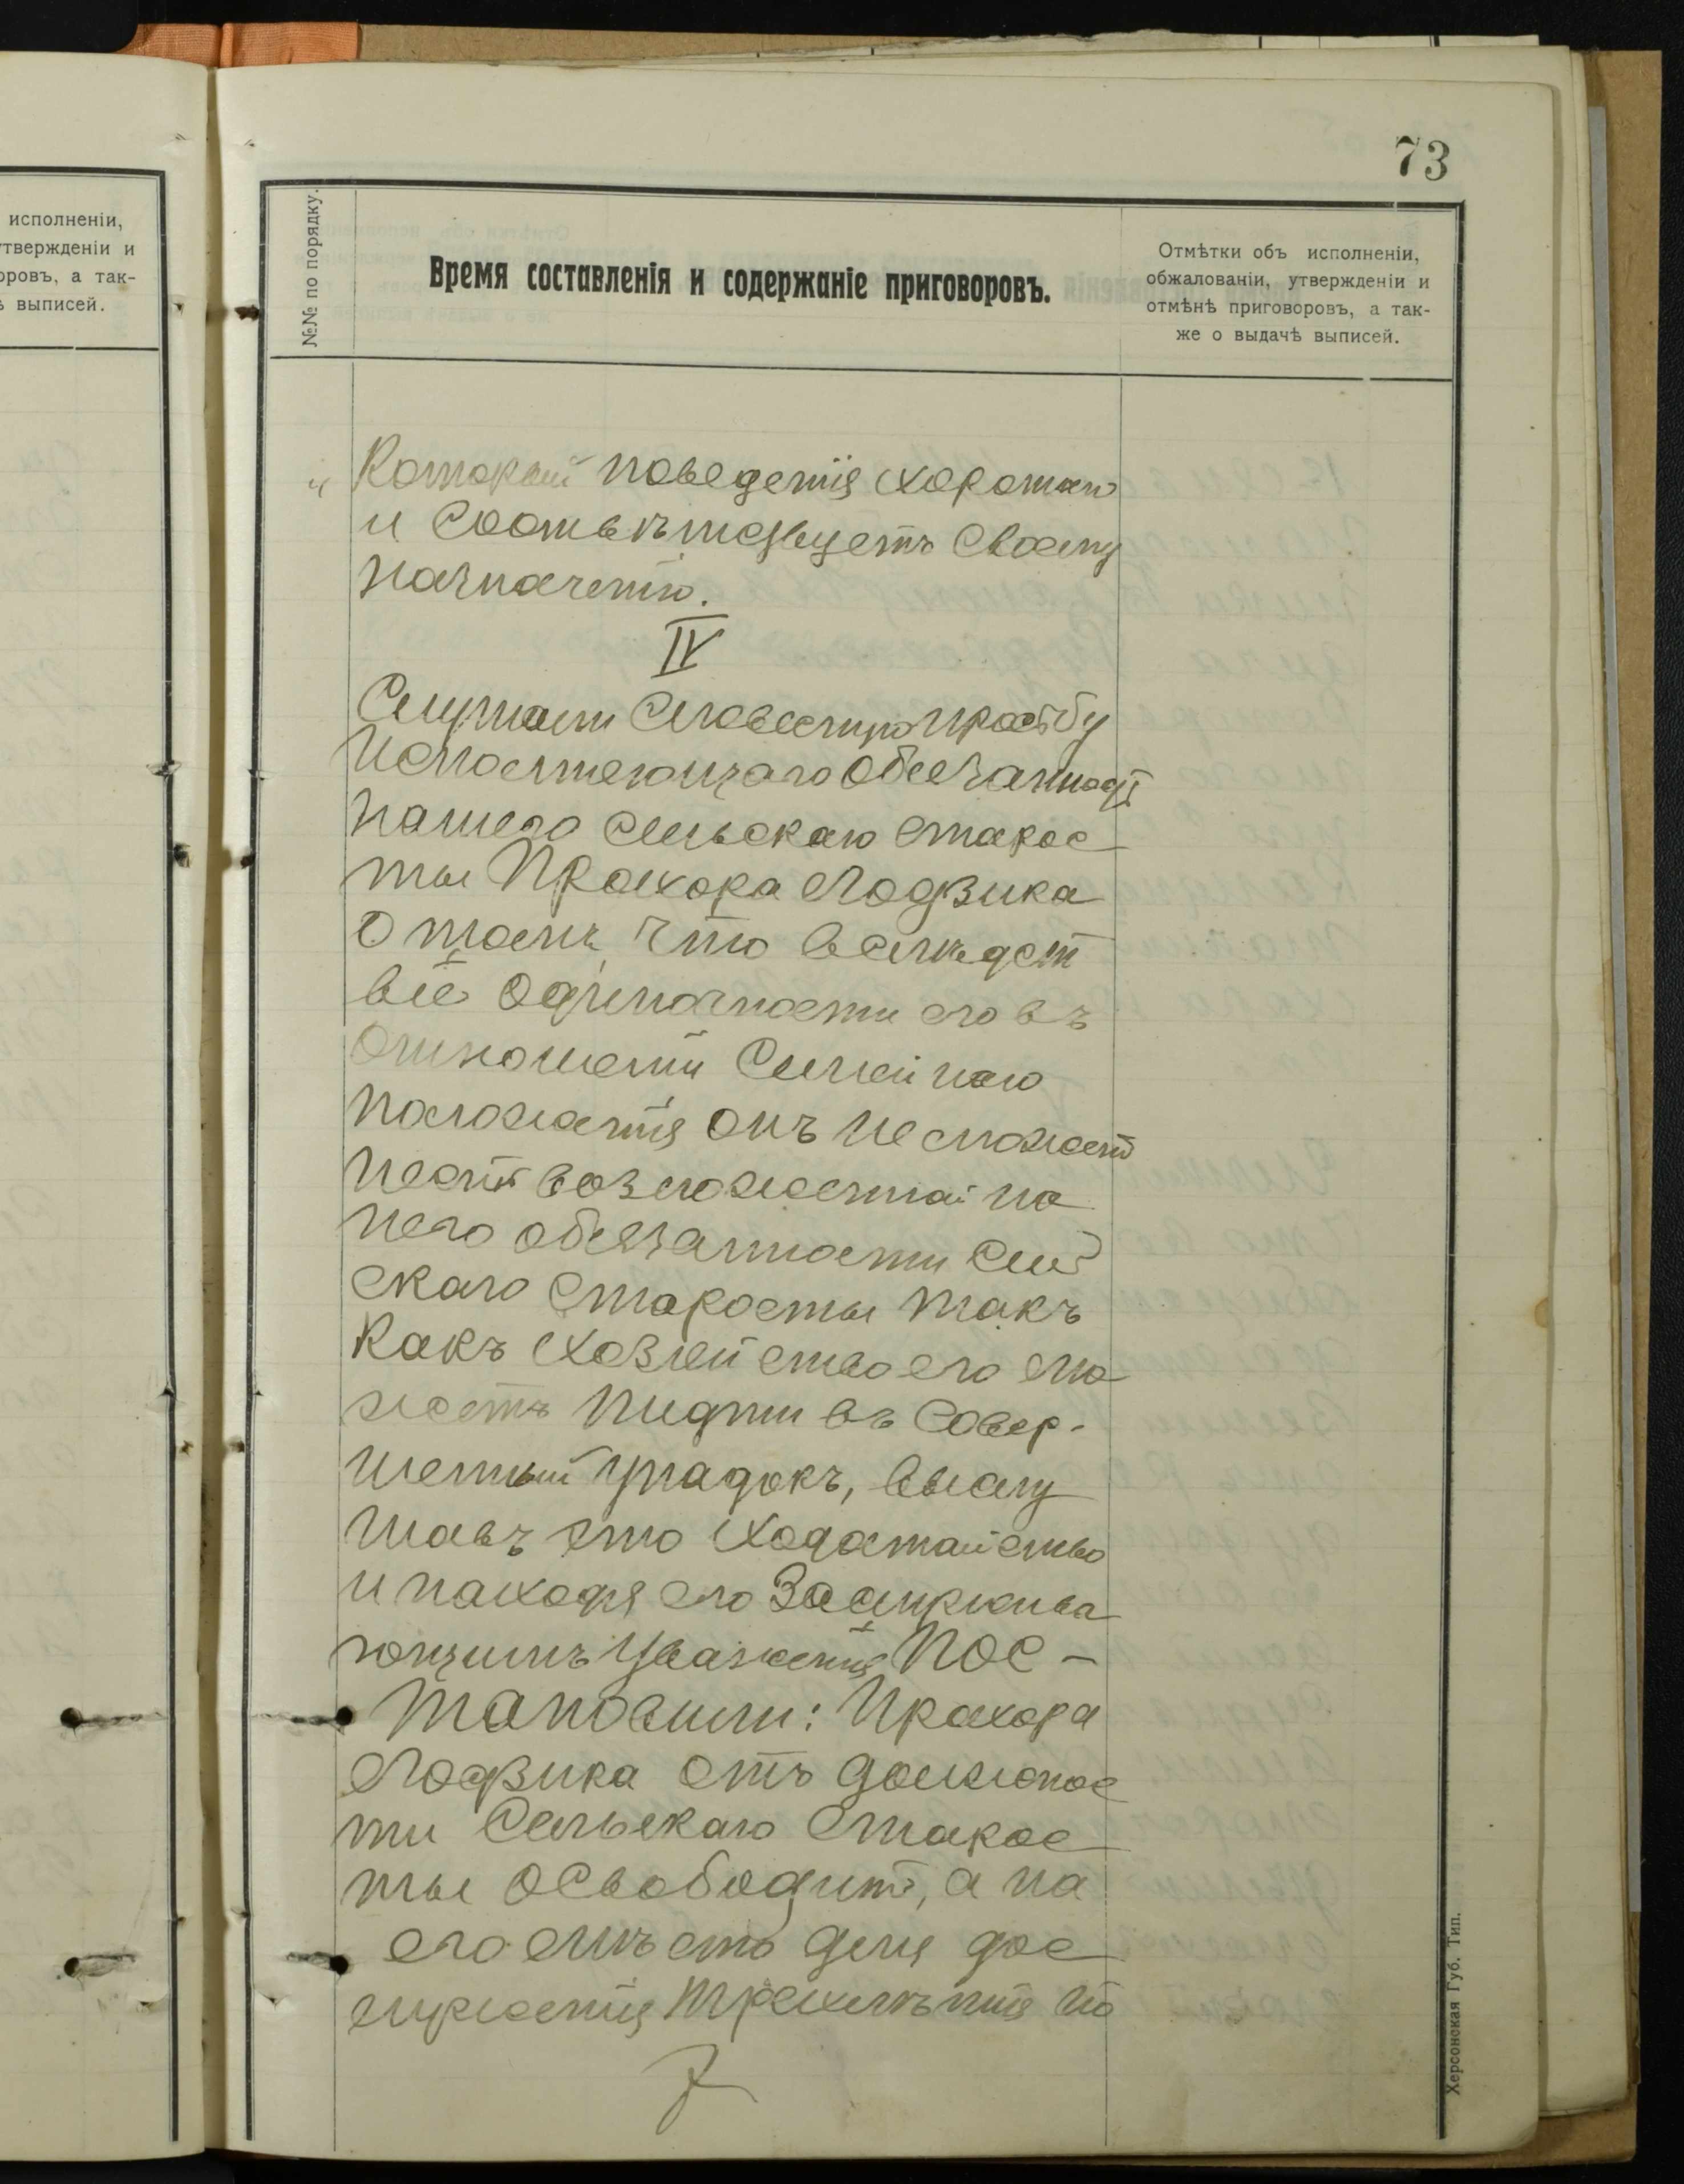 73
исполненіи,
утвержденіи и
оровъ, а так-
ѣ выписей.
№№ по порядку.
Время составленія и содержаніе приговоровъ.
Отмѣтки объ исполненіи,
обжалованіи, утвержденіи и
отмѣнѣ приговоровъ, а так-
же о выдачѣ выписей.
Который поведенія хорошаго
и соотвѣтствуетъ своему
назначенію.
IV
Слушали словесную просьбу
исполняющаго обязанность
нашего сельскаго старос
ты Прохора Лодзика
о томъ, что вслѣдст
віе одиночности его въ
отношеніи семейнаго
положенія онъ не может
нести возложенной на
него обязанности сель
скаго старосты такъ
какъ хозяйство его мо
жетъ придти въ совер-
шенный упадокъ, выслу
шавъ это ходатайство
и находя его заслужива
ющимъ уваженія, пос-
тановили: Прохора
Лодзика отъ должнос
ти сельскаго старос
ты освободить, а на
его мѣсто для дос
луженія трехлѣтія по
Херсонская Губ. Тип.